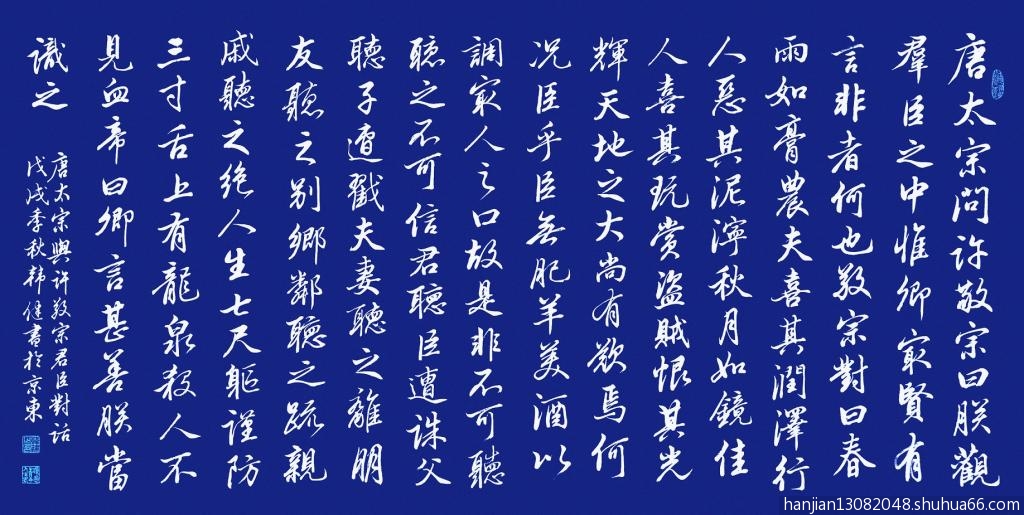 唐太宗問許敬宗曰朕觀
羣臣之中惟卿冣賢有
言非者何也敬宗對曰春
雨如膏農夫喜其潤澤行
人惡其泥濘秋月如鏡佳
人喜其玩賞盜賊恨其光
輝天地之大尚有欲焉何
况臣乎臣無肥羊美酒以
調衆人之口故是非不可聽
聽之不可信君聽臣遭誅父
聽子遭戮夫妻聽之離朋
友聽之别鄉鄰聽之疏親
戚聽之绝人生七尺軀谨防
三寸舌上有龍泉殺人不
見血帝曰卿言甚善朕當
識之
唐太宗與許敬宗君臣對话
戊戌季秋韩健書於京東
hanjian13082048.shuhua66.com